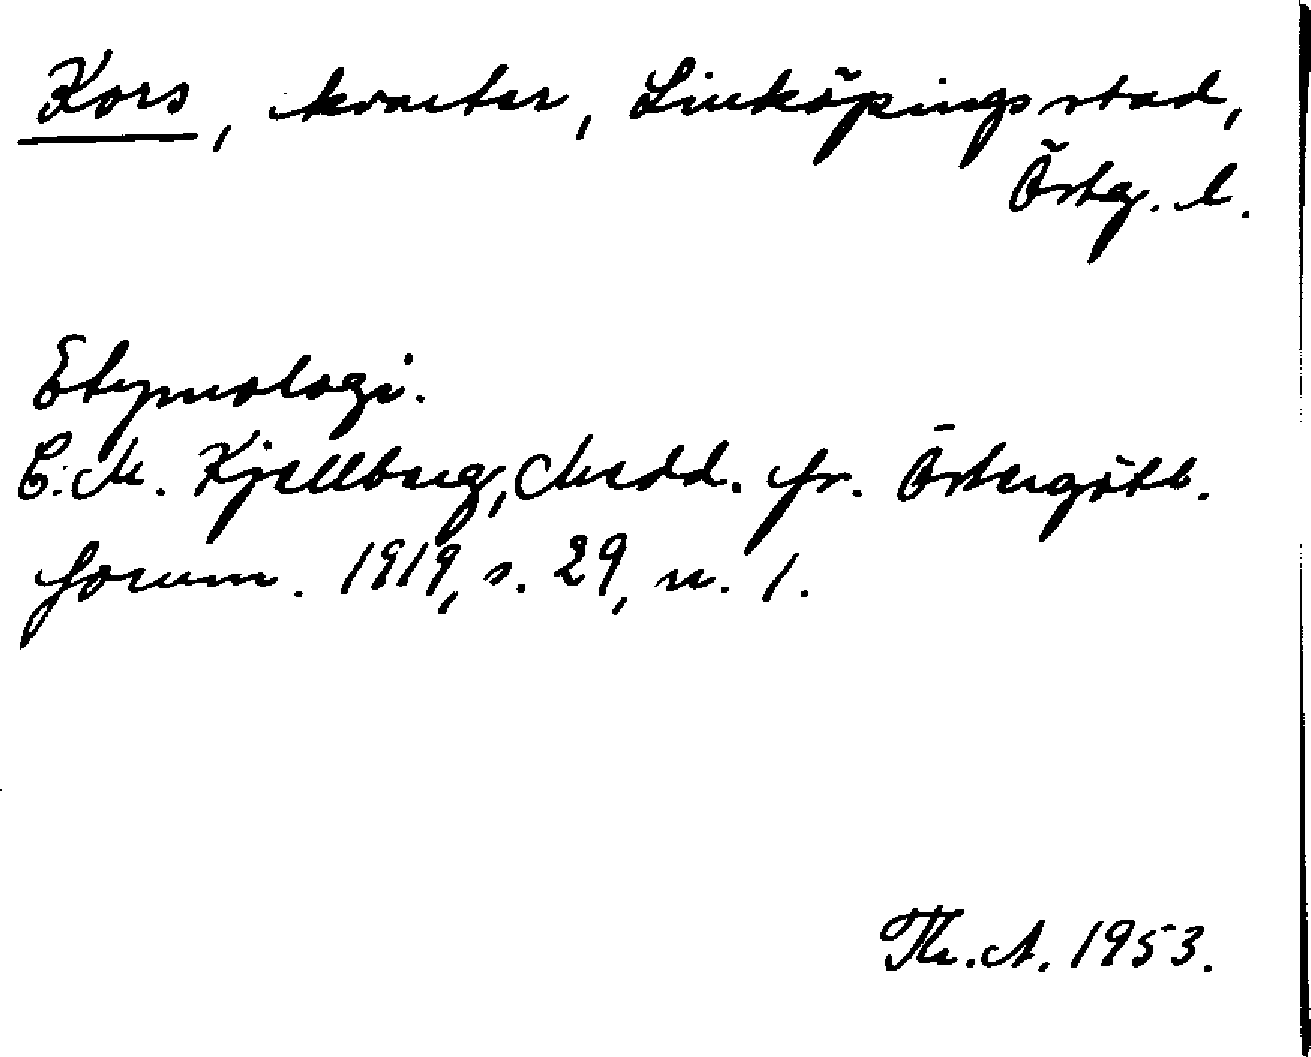 Kors, kvarter, Linköpings stad,
Östg. l.
Etymologi.
C. M. Kjellberg, Medd. fr. Östergötl.
fornm. 1919, s. 29, n. 1.
Th. A. 1953.